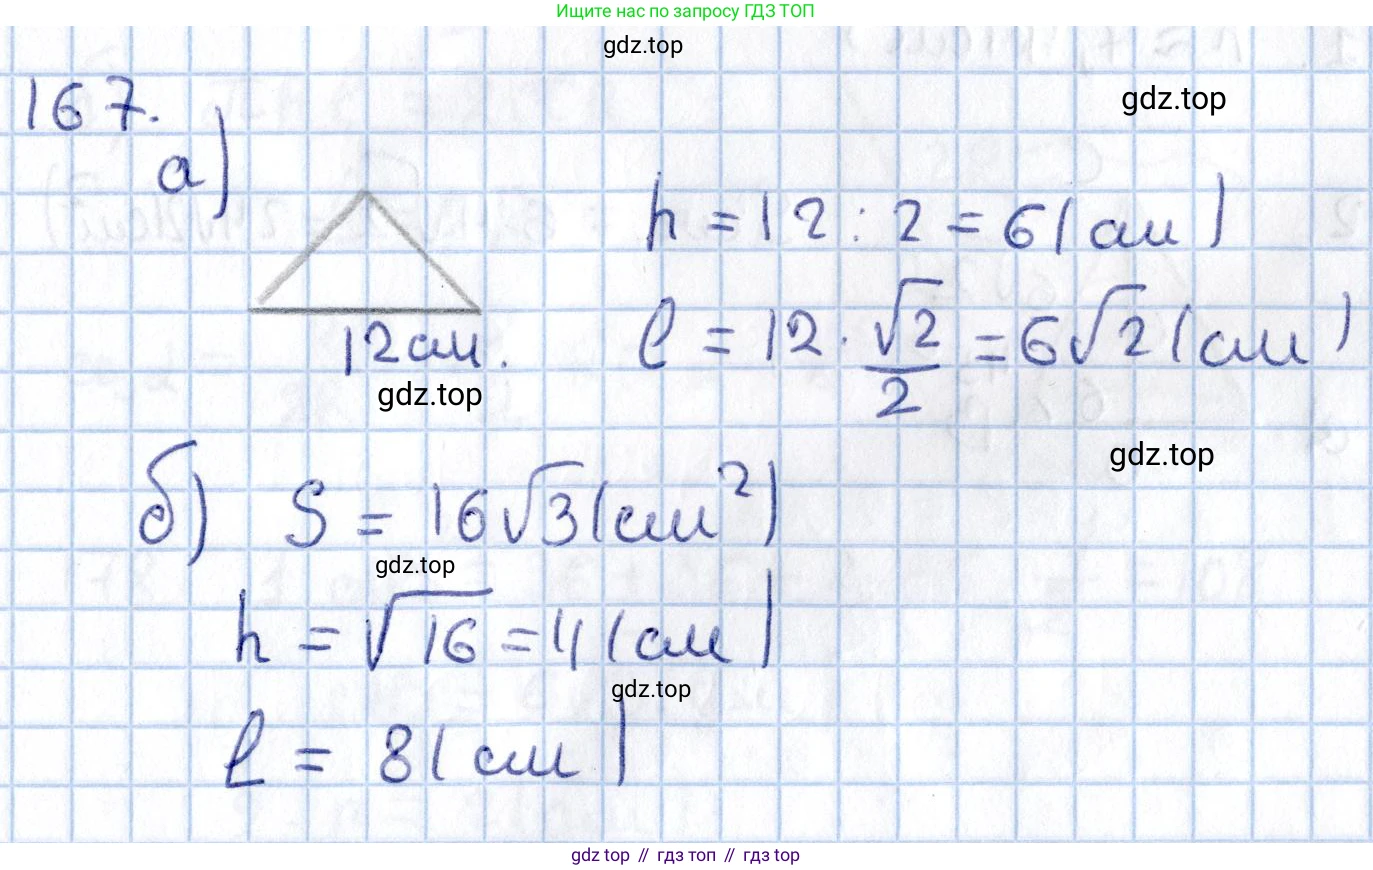 Ищите нас по запросу ГДЗ ТОП
gdz.top
gdz.top
167.
а)
h = 12 : 2 = 6 (см)
l = 12 · √2/2 = 6√2 (см)
12 см.
gdz.top
gdz.top
б) S = 16√3 (см²)
gdz.top
h = √16 = 4 (см)
gdz.top
l = 8 (см)
gdz.top // гдз топ // гдз top